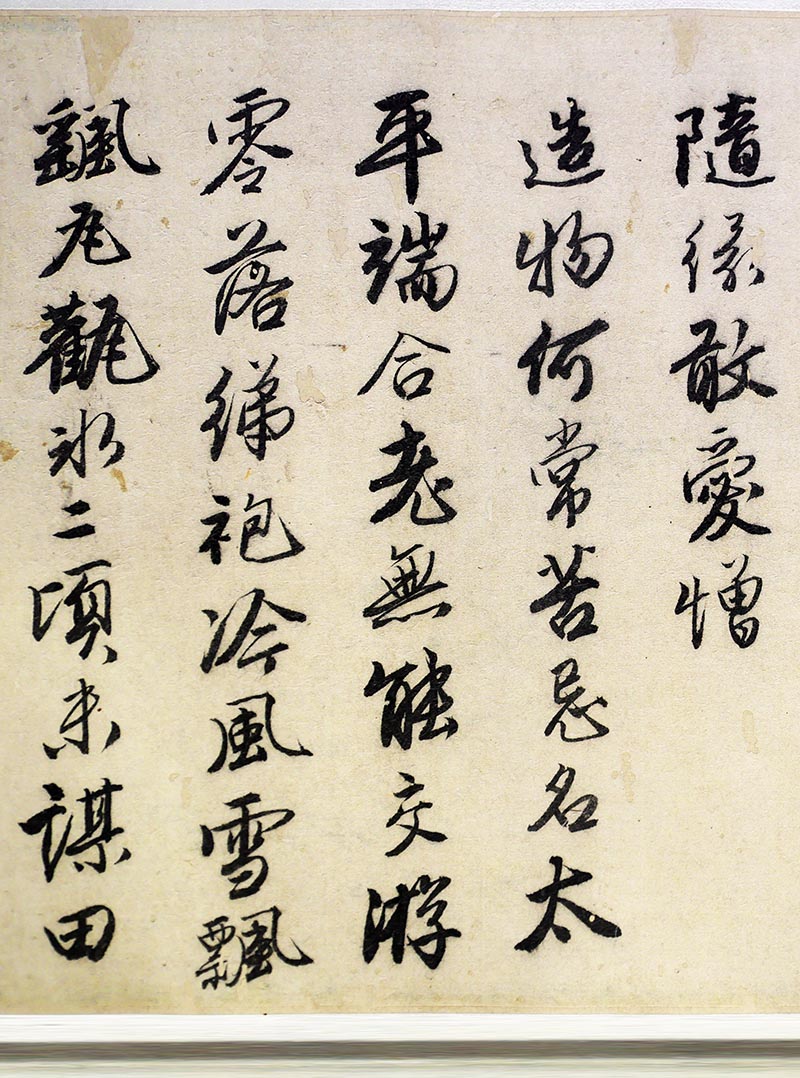 隨緣敢愛憎
造物何常苦忌名太
平端合老無能交游
零落綈袍冷風雪飄
颻瓦冰二頃未謀田